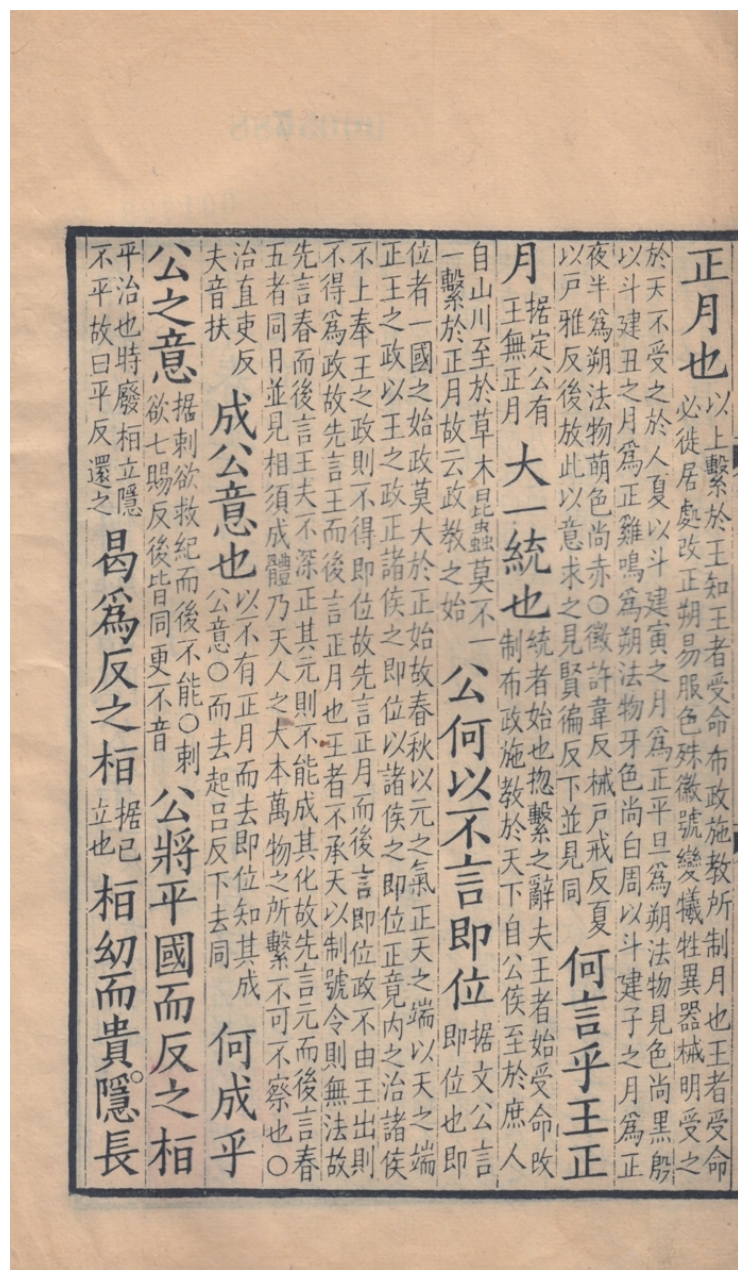 正月也以上繫於王知王者受命布政施教所制月也王者受命
必徙居處改正朔易服色殊徽號變犧牲異器械明受之
於天不受之於人夏以斗建寅之月爲正平旦爲朔法物見色尚黑殷
以斗建丑之月爲正雞鳴爲朔法物牙色尚白周以斗建子之月爲正
夜半爲朔法物萌色尚赤○徽許韋反械戸戒反夏
以戸雅反後放此以意求之見賢徧反下並見同
何言乎王正
月据定公有
王無正月
大一統也統者始也揔繫之辭夫王者始受命改
制布政施教於天下自公侯至於庶人
自山川至於草木昆蟲莫不一
一繫於正月故云政教之始
公何以不言即位据文公言
即位也即
位者一國之始政莫大於正始故春秋以元之氣正天之端以天之端
正王之政以王之政正諸侯之即位以諸侯之即位正竟内之治諸侯
不上奉王之政則不得即位故先言正月而後言即位政不由王出則
不得爲政故先言王而後言正月也王者不承天以制號令則無法故
先言春而後言王夫不深正其元則不能成其化故先言元而後言春
五者同日並見相須成體乃天人之大本萬物之所繫不可不察也○
治直吏反
夫音扶
成公意也以不有正月而去即位知其成
公意○而去起呂反下去同
何成乎
公之意据刺欲救紀而後不能○刺
欲七賜反後皆同更不音
公將平國而反之桓
平治也時廢桓立隱
不平故曰平反還之
曷爲反之桓据已
立也
桓幼而貴隱長